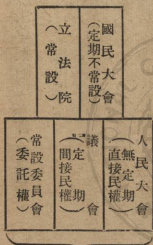 國民大會
（定期不常設）
立法院
（常設）
人民大會
（無定期
直接民權）
議會
（定期
間接民權）
常設委員會
（委託權）